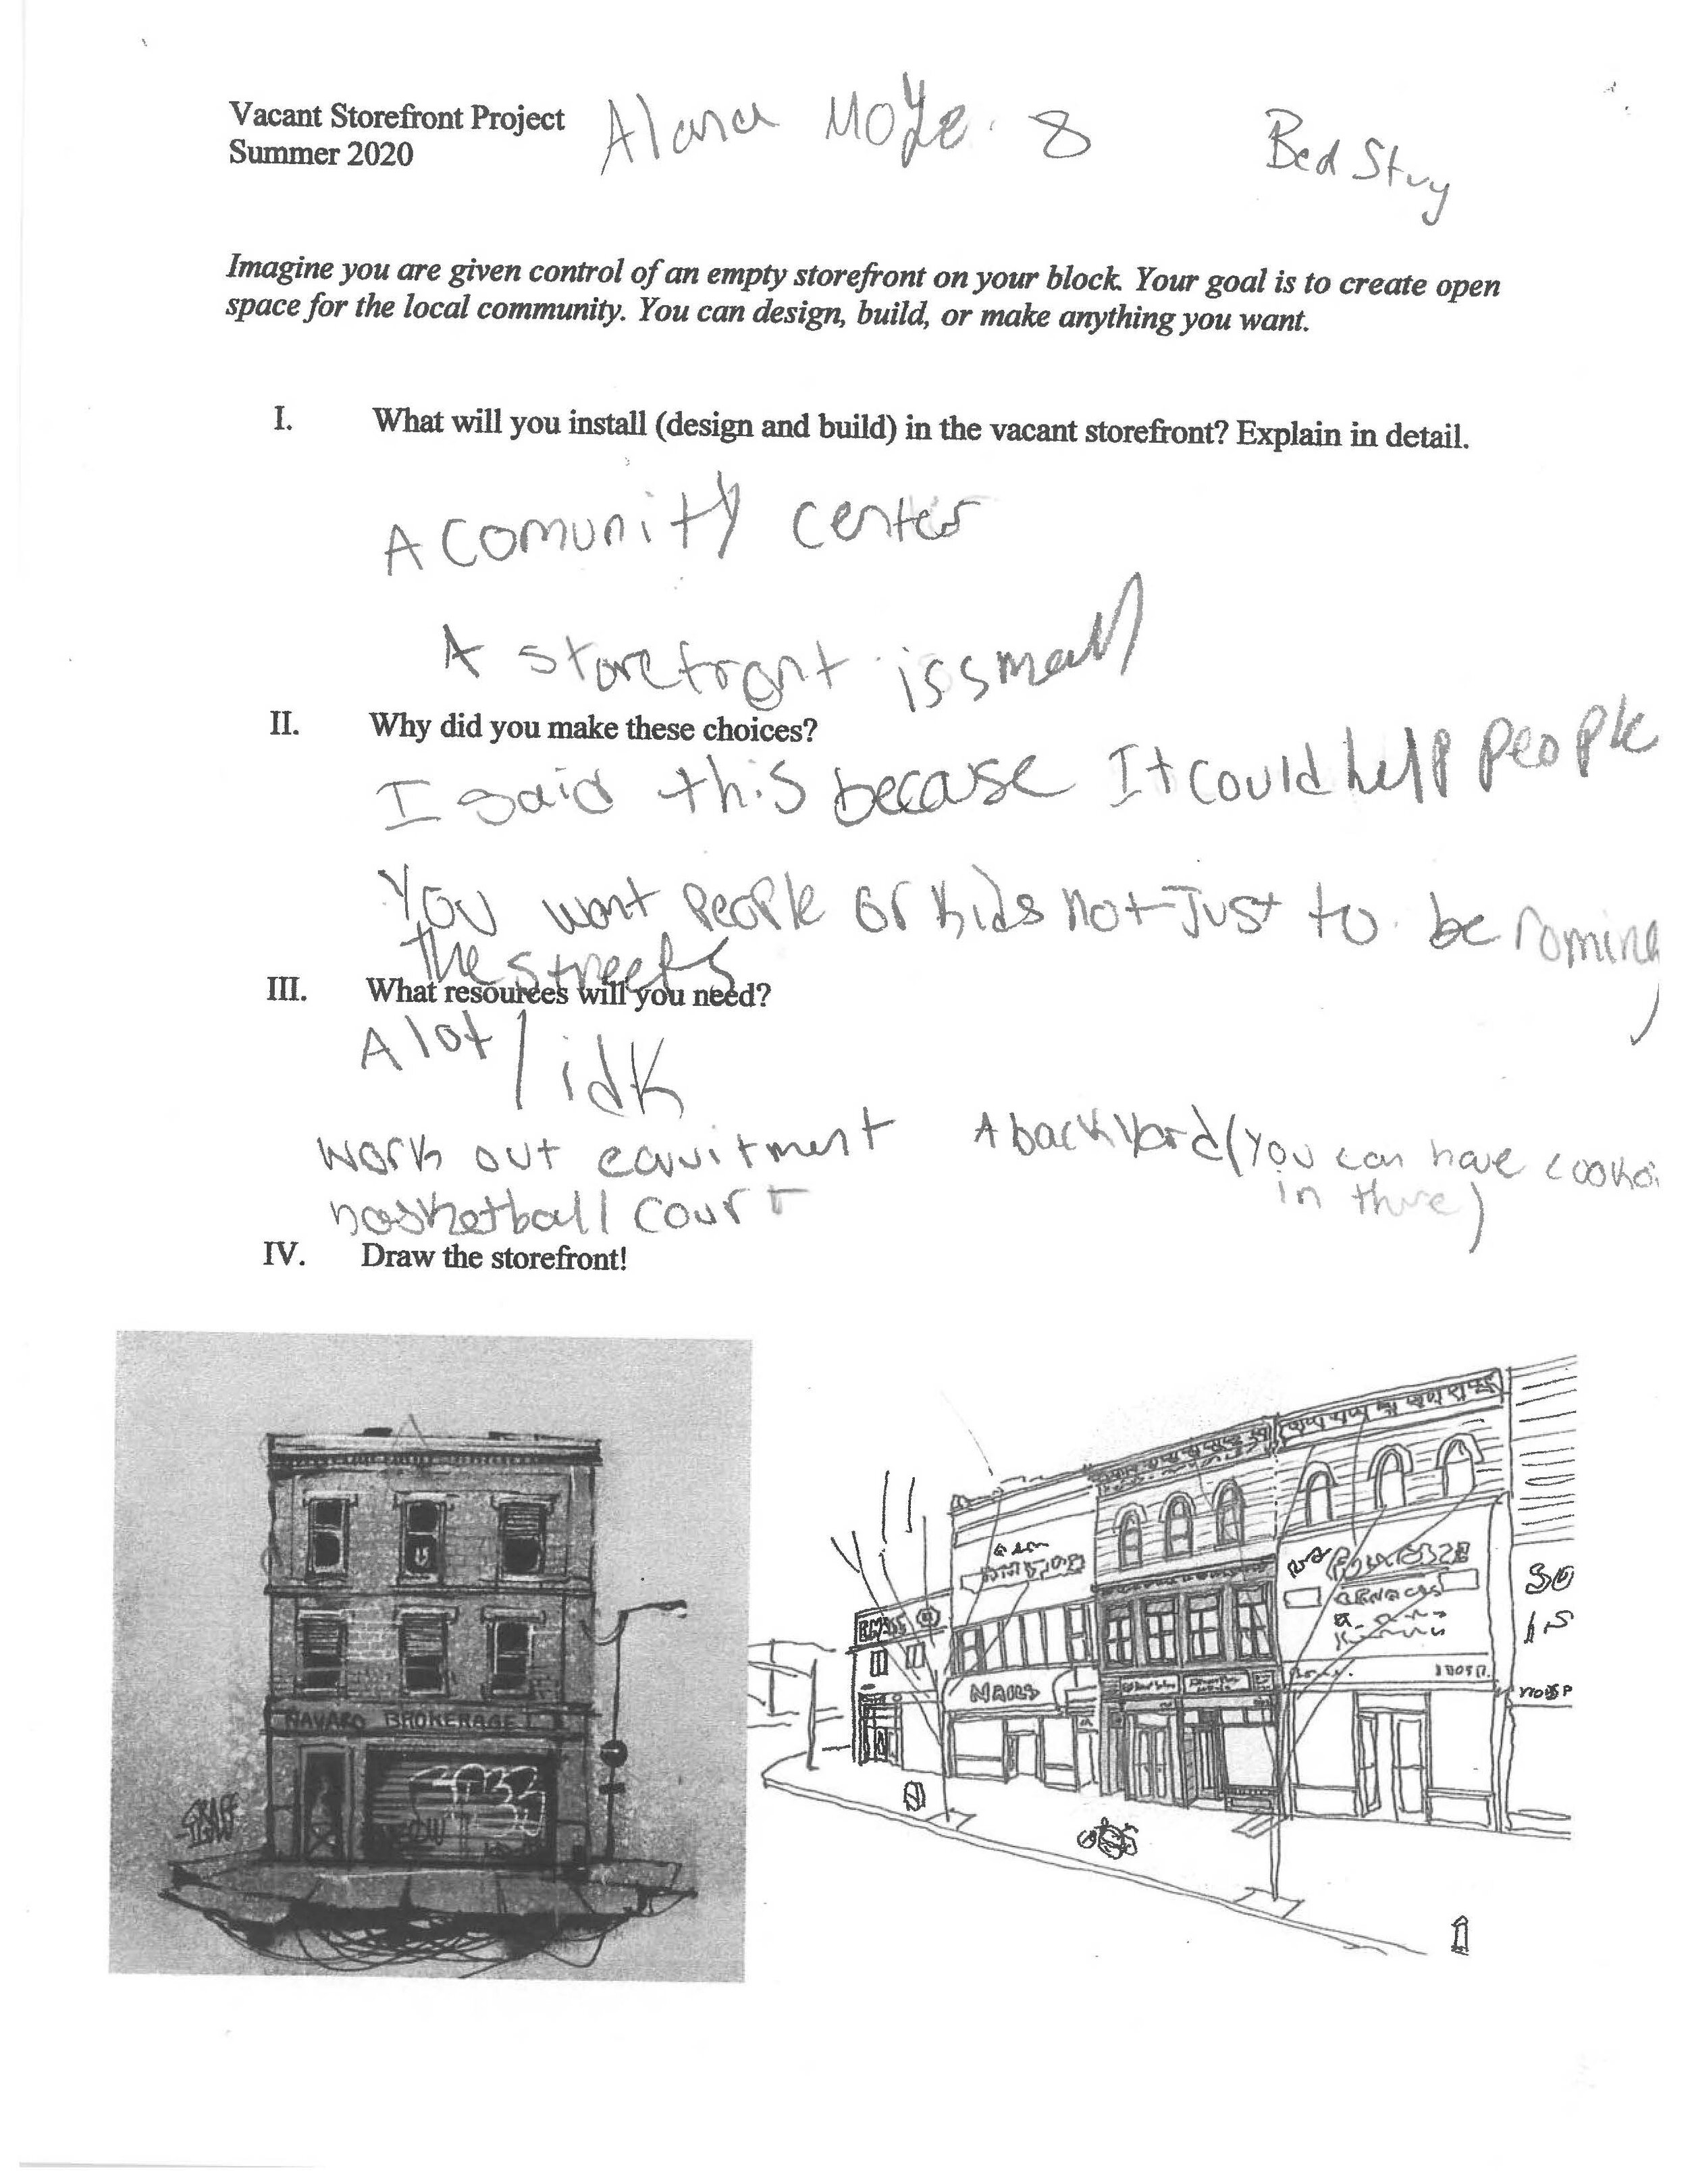 Vacant Storefront Project Alana Moye. 8 Bed Stuy
Summer 2020
Imagine you are given control of an empty storefront on your block. Your goal is to create open
space for the local community. You can design, build, or make anything you want.
I. What will you install (design and build) in the vacant storefront? Explain in detail.
A comunity center
A storefront is small
II. Why did you make these choices?
I said this becase It could help people
You want people or kids not Just to be roming
the streets
III. What resources will you need?
A lot / idk
work out equitment A back yard (You can have cooko
basketball court in there)
IV. Draw the storefront!
NAVARO BROKERAGE
NAILS